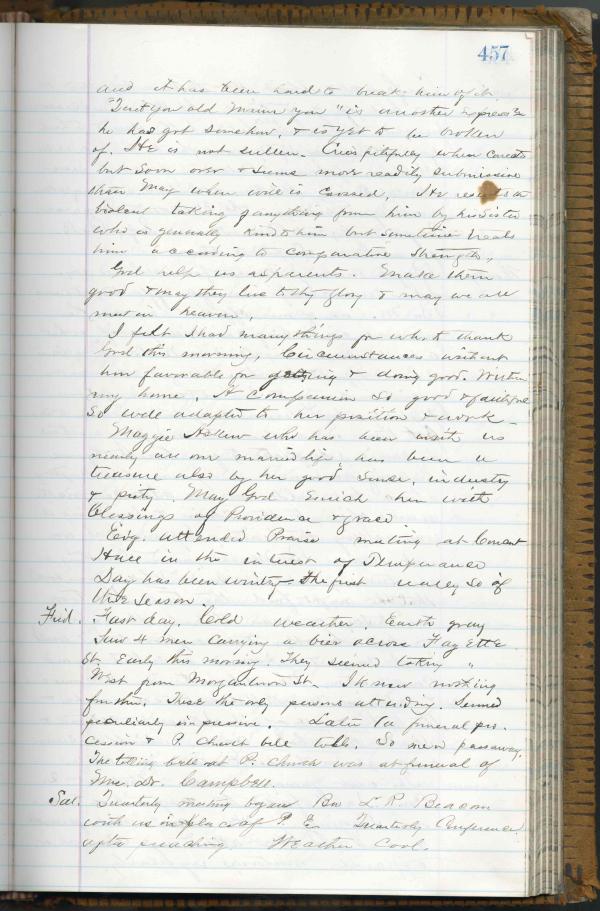 457
and it has been hard to break him of it.
"Quit you old Mimm you" is another expression
he has got somehow, & is yet to be broken
of. He is not sullen. Cries pitifully when corrected
but soon over & seems more readily submissive
than May when will is crossed. He resents a
violent taking of anything from him by his sister
who is generally kind to him but sometimes treats
him according to comparative strength.
God help us as parents. Make them
good & may they live to thy glory & may we all
meet in heaven.
I felt I had many things for wh. to thank
God this morning. Circumstances without
him favorable for getting & doing good. Within
my home. A companion so good & faithful
So well adapted to her position & work
Maggie Askew who has been with us
nearly all our married life has been a
treasure also by her good sense, industry
& piety. May God enrich her with
blessings of Providence & grace
Evg. attended Praise meeting at Concert
Hall in the interest of Temperance
Day has been wintry - the first really so of
the season.
Frid. Fast day. Cold weather. Earth gray
Saw 4 men carrying a bier across Fayette
St. Early this morning. They seemed
West from Morgantown St. I knew nothing
further. These the only persons attending. Seemed
peculiarly impressive. Later a funeral pro-
cession & P. Church bell tolls. So men pass away.
The tolling bell at P. Church was at funeral of
Mrs. Dr. Campbell.
Sat. Quarterly meeting began Bro L. R. Beacom
with us in place of P. E. Quarterly Conference
after preaching. Weather Cool.